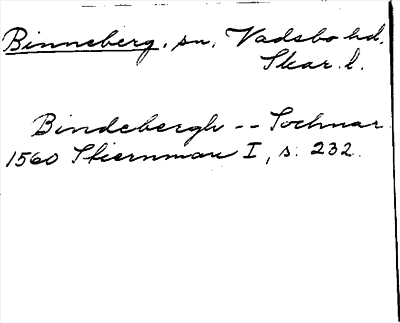 Binneberg, sn, Vadsbo hd.
Skar. l.
Bindebergh -- Sochnar
1560 Stiernman I, s. 232.